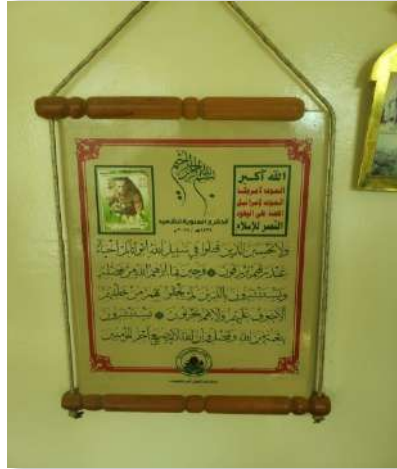 بسم الله الرحمن الرحيم
الله أكبر
الموت لأمريكا
الموت لإسرائيل
اللعنة على اليهود
النصر للإسلام
الذكرى السنوية للشهيد
ولا تحسبن الذين قتلوا في سبيل الله أمواتا بل أحياء
عند ربهم يرزقون فرحين بما آتاهم الله من فضله
ويستبشرون بالذين لم يلحقوا بهم من خلفهم
ألا خوف عليهم ولا هم يحزنون يستبشرون
بنعمة من الله وفضل وأن الله لا يضيع أجر المؤمنين